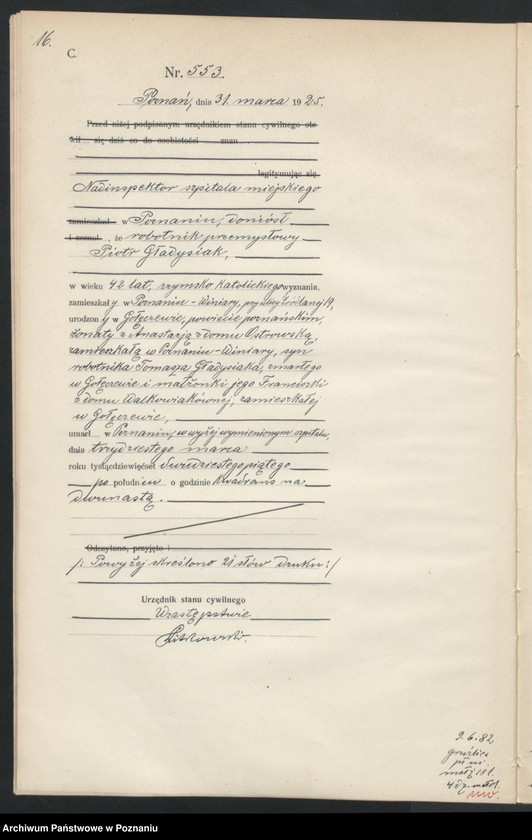 16.
C.
Nr. 553.
Poznań, dnia 31. marca 1925.
Przed niżej podpisanym urzędnikiem stanu cywilnego sta
wił się dziś co do osobistości znan
legitymując się
Nadinspektor szpitala miejskiego
zamieszkał w Poznaniu, doniósł
i zeznał, że robotnik przemysłowy
Piotr Gładysiak,
w wieku 42 lat, rzymsko katolickiego wyznania,
zamieszkały w Poznaniu-Winiary, przy ulicy
urodzony w Gołęczewie, powiecie poznańskim,
żonaty z Anastazją z domu Ostrowską
zamieszkałą w Poznaniu-Winiary, syn
robotnika Tomasza Gładysiaka, zmarłego
w Gołęczewie i małżonki jego Franciszki
z domu Walkowiakównej, zamieszkałej
w Gołęczewie,
umarł w Poznaniu, w wyżej wymienionym szpitalu,
dnia trzydziestego marca
roku tysiącdziewięćset dwudziestego piątego
po południu o godzinie kwadrans na
dwunastą.
Odczytano, przyjęto i
/: Powyżej skreślono 21 słów druku :/
Urzędnik stanu cywilnego
W zastępstwie
9.6.82
gruźlica
Archiwum Państwowe w Poznaniu